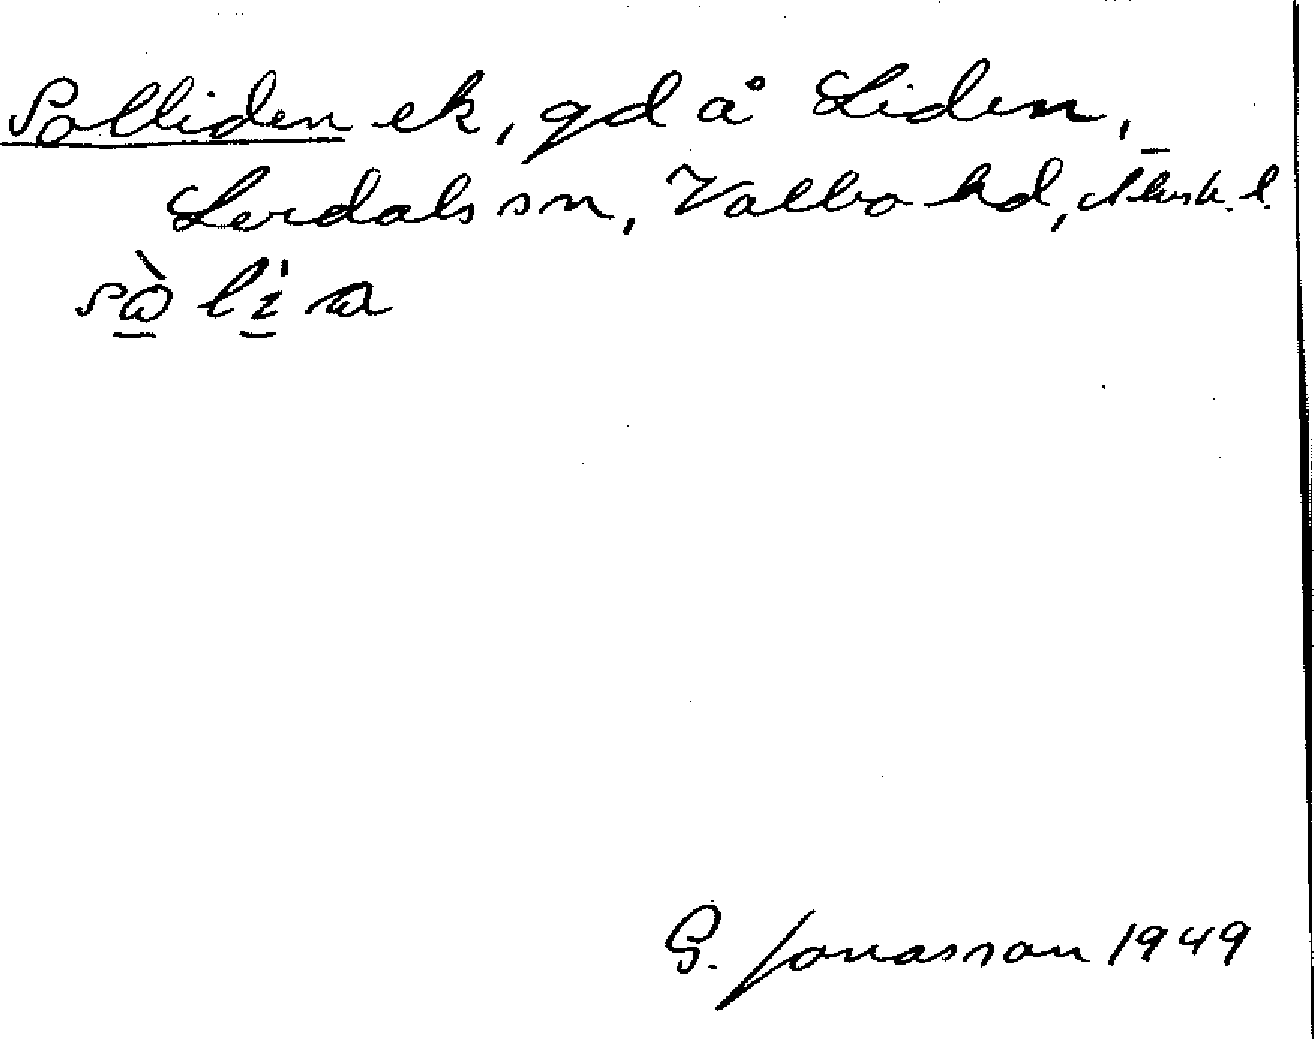 Solliden ek, gd å Liden,
Lerdals sn, Valbo hd, Älvsb. l.
G. Jonasson 1949